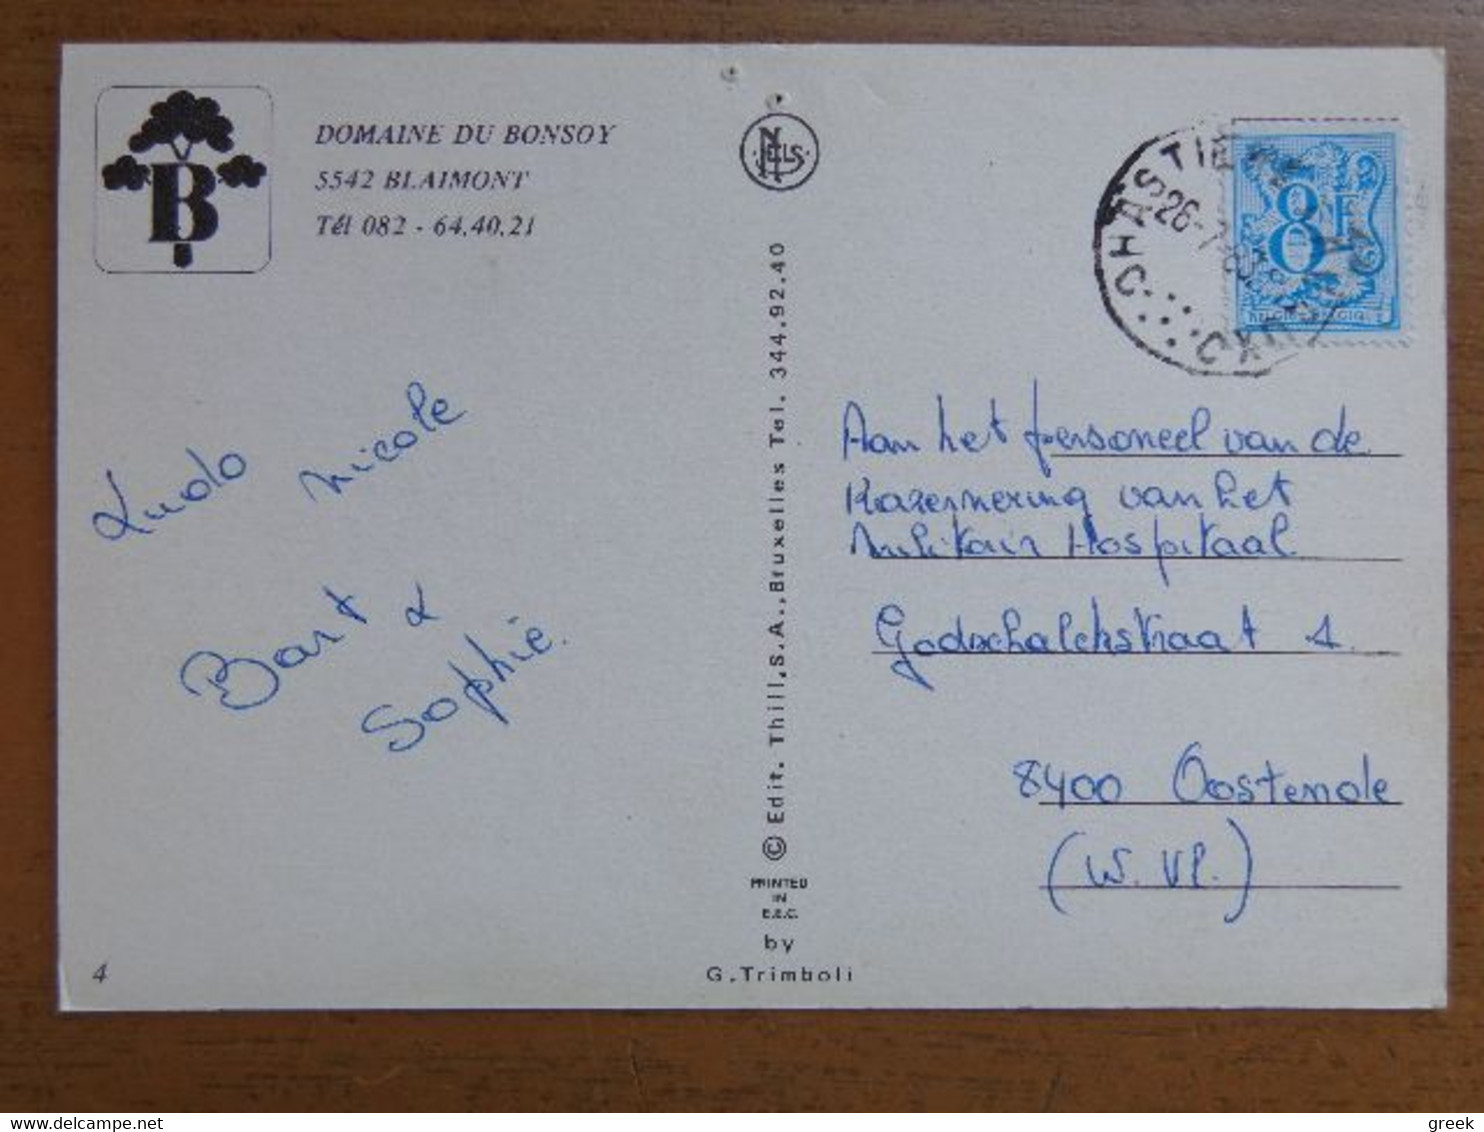 B
DOMAINE DU BONSOY
5542 BLAIMONT
Tél 082 - 64.40.21
NELS
8F
Ludo Nicole
Bart &
Sophie.
Aan het personeel van de
Kazernering van het
Militair Hospitaal
Godschalckstraat 1
8400 Oostende
(W. Vl.)
© Edit. Thill, S.A., Bruxelles Tel. 344.92.40
PRINTED
IN
E.E.C.
by
G. Trimboli
4
greek
delcampe.net